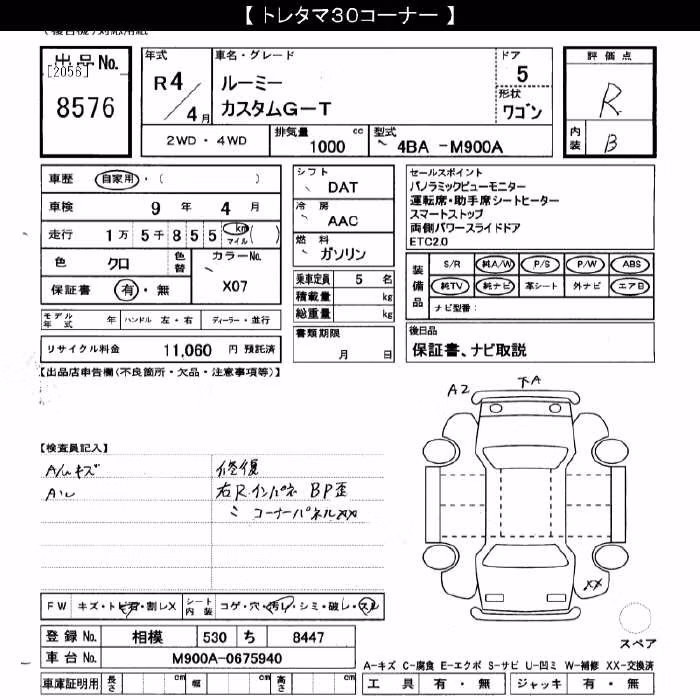 【 トレタマ30コーナー 】
出品No.
[2056]
8576
年式
R4
4月
車名・グレード
ルーミー
カスタムG-T
ドア
5
形状
ワゴン
2WD・4WD
排気量 cc
1000
型式
4BA -M900A
評価点
R
内装
B
車歴 自家用・( )
車検 9 年 4 月
走行 1万 5千 8 5 5 km マイル ( )
色 クロ 色替
カラーNo.
X07
保証書 有・無
モデル年式 年 ハンドル 左・右 ディーラー・並行
リサイクル料金 11,060 円 預託済
シフト
DAT
冷房
AAC
燃料
ガソリン
乗車定員 5 名
積載量 kg
総重量 kg
書類期限
月 日
セールスポイント
パノラミックビューモニター
運転席・助手席シートヒーター
スマートストップ
両側パワースライドドア
ETC2.0
装備品
S/R 純A/W P/S P/W ABS
純TV 純ナビ 革シート 外ナビ エアB
ナビ型番:
後日品
保証書、ナビ取説
【出品店申告欄(不良箇所・欠品・注意事項等)】
【検査員記入】
A/Wキズ
修復
右R.インパネ BP歪
〃 コーナーパネルXX
A2
下A
XX
スペア
FW キズ・トビ石・割レX シート内装 コゲ・穴・汚レ・シミ・破レ・スレ
登録No. 相模 530 ち 8447
車台No. M900A-0675940
車庫証明用 長さ cm 幅 cm 高さ cm
A-キズ C-腐食 E-エクボ S-サビ U-凹ミ W-補修 XX-交換済
工具 有・無 ジャッキ 有・無